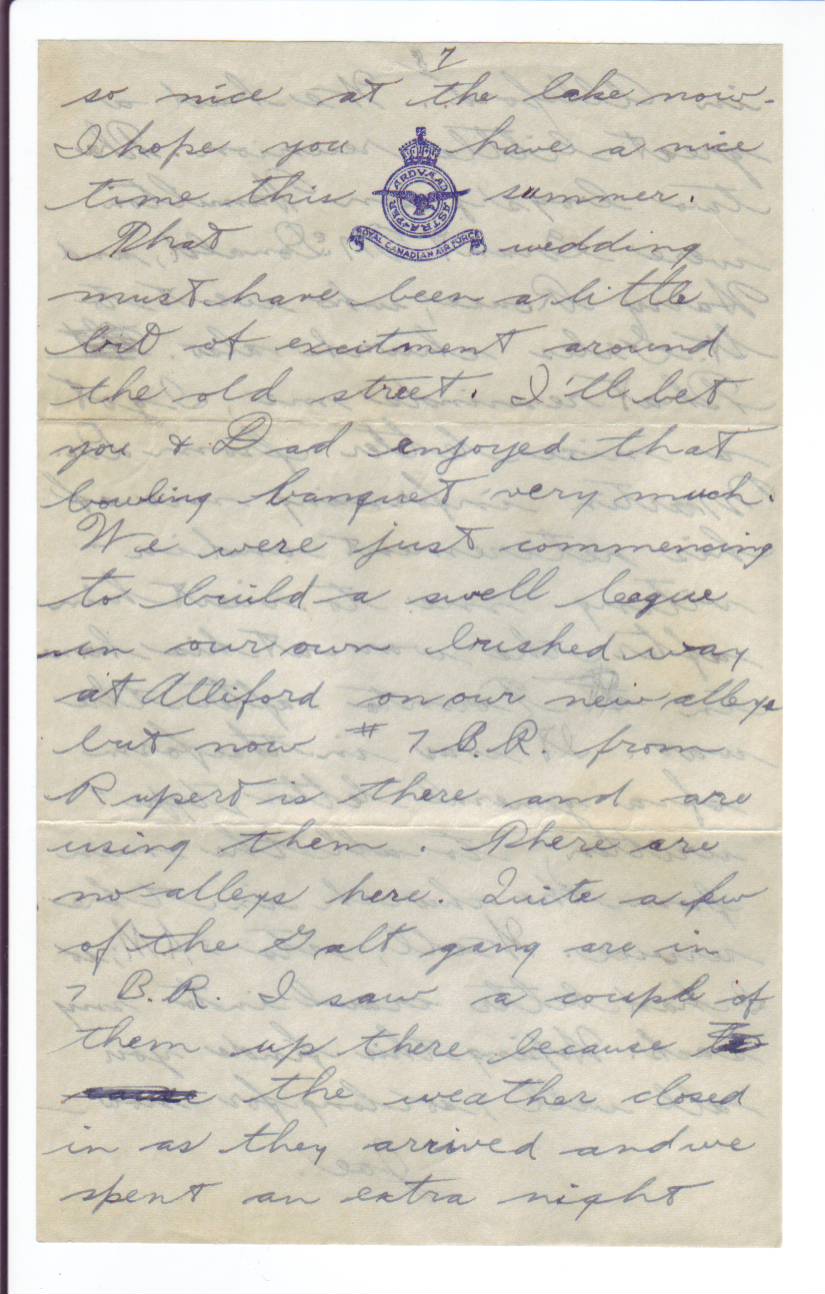 7
so nice at the lake now.
I hope you have a nice
time this summer.
PER ARDVA AD ASTRA
ROYAL CANADIAN AIR FORCE
That wedding
must have been a little
bit of excitment around
the old street. I'll bet
you & Dad enjoyed that
bowling banquet very much.
We were just commencing
to build a swell legue
in our own bushed way
at Alliford on our new alleys
but now # 7 B.R. from
Rupert is there and are
using them. There are
no alleys here. Quite a few
of the Galt gang are in
7 B.R. I saw a couple of
them up there because
the weather closed
in as they arrived and we
spent an extra night